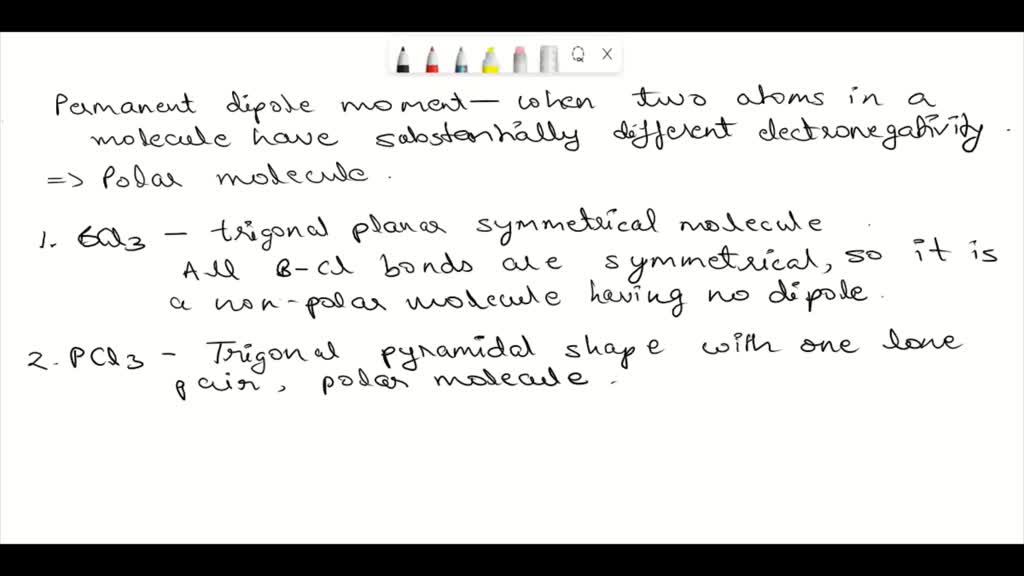 Permanent dipole moment — when two atoms in a
molecule have substantially different electronegativity.
=> Polar molecule.
1. BCl3 - trigonal planar symmetrical molecule
All B-Cl bonds are symmetrical, so it is
a non-polar molecule having no dipole.
2. PCl3 - Trigonal pyramidal shape with one lone
pair, polar molecule.